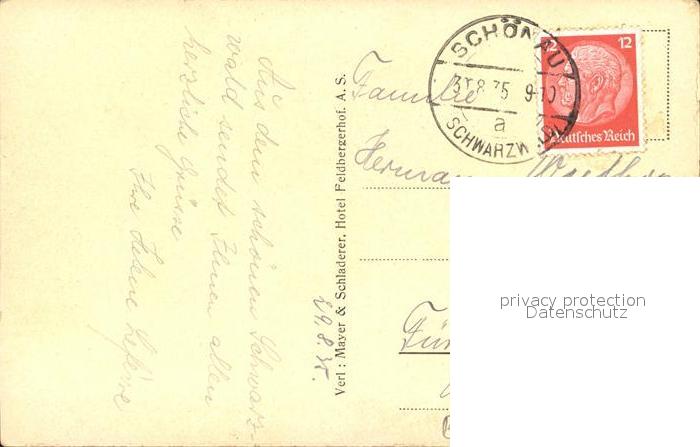 Aus dem schönen Schwarz-
wald sendet Ihnen allen
herzliche Grüsse
Ihre Helene
29.8.35.
Verl: Mayer & Schladerer, Hotel Feldbergerhof. A. S.
SCHÖNAU
31.8.35 9-10
a
SCHWARZW
12 12
Deutsches Reich
Familie
Herma
privacy protection
Datenschutz